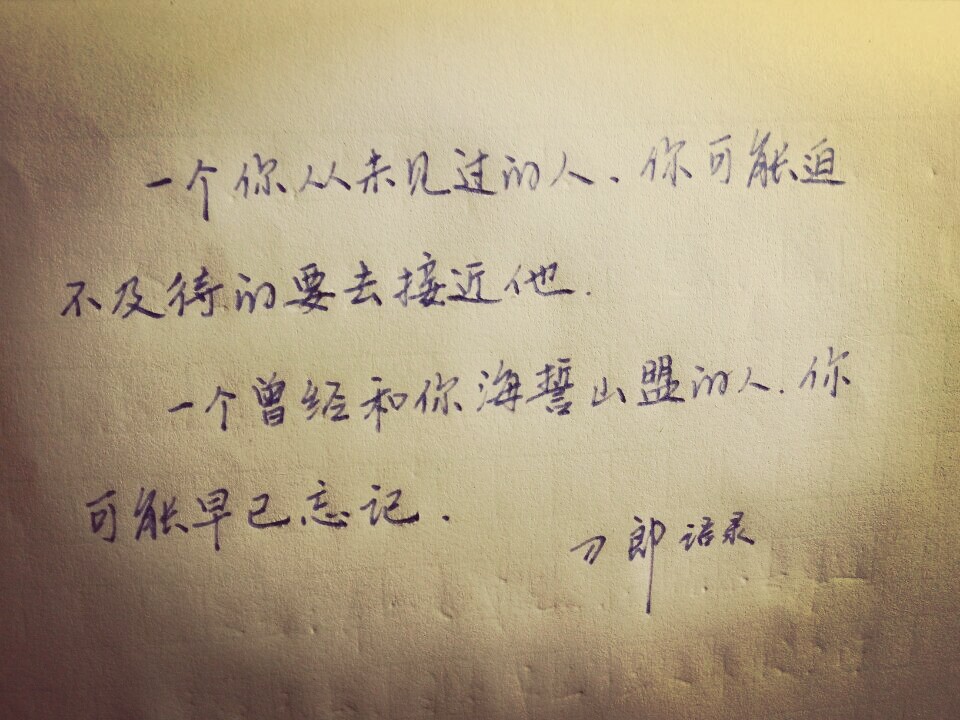 一个你从未见过的人、你可能迫
不及待的要去接近他.
一个曾经和你海誓山盟的人、你
可能早已忘记.
刀郎语录